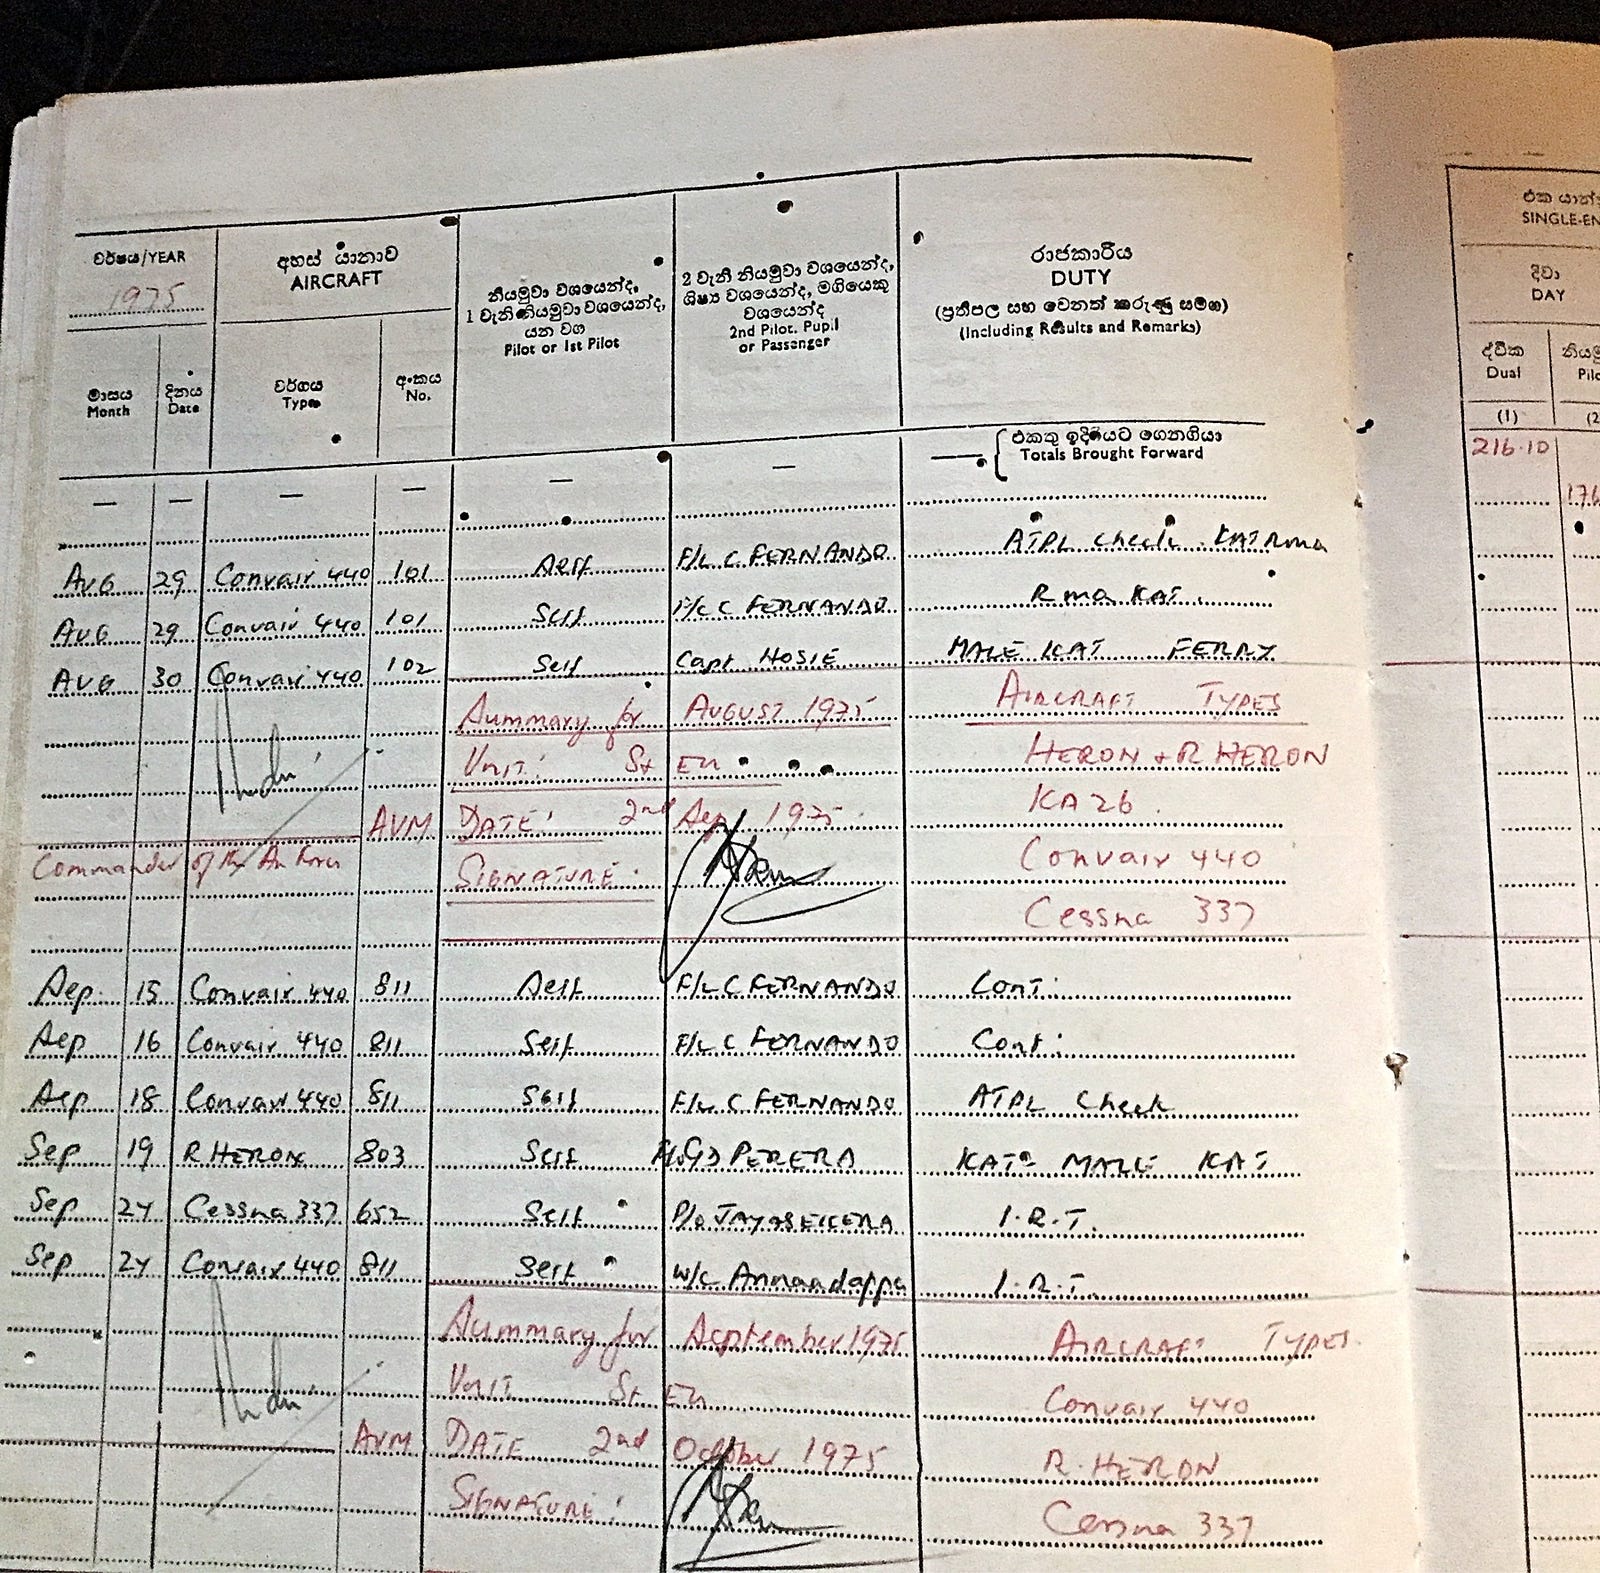 වර්ෂය/YEAR
1975
අහස් යානාව
AIRCRAFT
නියමුවා වශයෙන්ද,
1 වැනි නියමුවා වශයෙන්ද,
යන වග
Pilot or 1st Pilot
2 වැනි නියමුවා වශයෙන්ද,
ශිෂ්‍ය වශයෙන්ද, මගියෙකු
වශයෙන්ද
2nd Pilot. Pupil
or Passenger
රාජකාරිය
DUTY
(ප්‍රතිපල සහ වෙනත් කරුණු සමඟ)
(Including Results and Remarks)
මාසය
Month
දිනය
Date
වර්ගය
Type
අංකය
No.
එකතු ඉදිරියට ගෙනගියා
Totals Brought Forward
— — — — — — —
AUG 29 Convair 440 101 Self F/L C FERNANDO ATPL check KAT Rma
AUG 29 Convair 440 101 Self F/L C FERNANDO Rma KAT.
AUG 30 Convair 440 102 Self Capt HOSIE MALE KAT FERRY
Summary for AUGUST 1975 AIRCRAFT TYPES
UNIT: HERON + R HERON
AVM DATE: 2nd Sep 1975 KA 26.
Commander of the Air Force SIGNATURE: Convair 440
Cessna 337
Sep. 15 Convair 440 811 Self F/L C FERNANDO Cont:
Sep 16 Convair 440 811 Self F/L C FERNANDO Cont:
Sep 18 Convair 440 811 Self F/L C FERNANDO ATPL Check
Sep 19 R HERON 803 Self PERERA KAT= MALE KAT
Sep 24 Cessna 337 652 Self P/O JAYASEKERA I.R.T.
Sep 24 Convair 440 811 Self W/C Annaadappa I.R.T.
Summary for September 1975 AIRCRAFT TYPES.
UNIT Convair 440
AVM DATE 2nd October 1975 R. HERON
SIGNATURE: Cessna 337
එක
SINGLE-EN
දිවා
DAY
ද්විත්ව
Dual
(1)
216.10